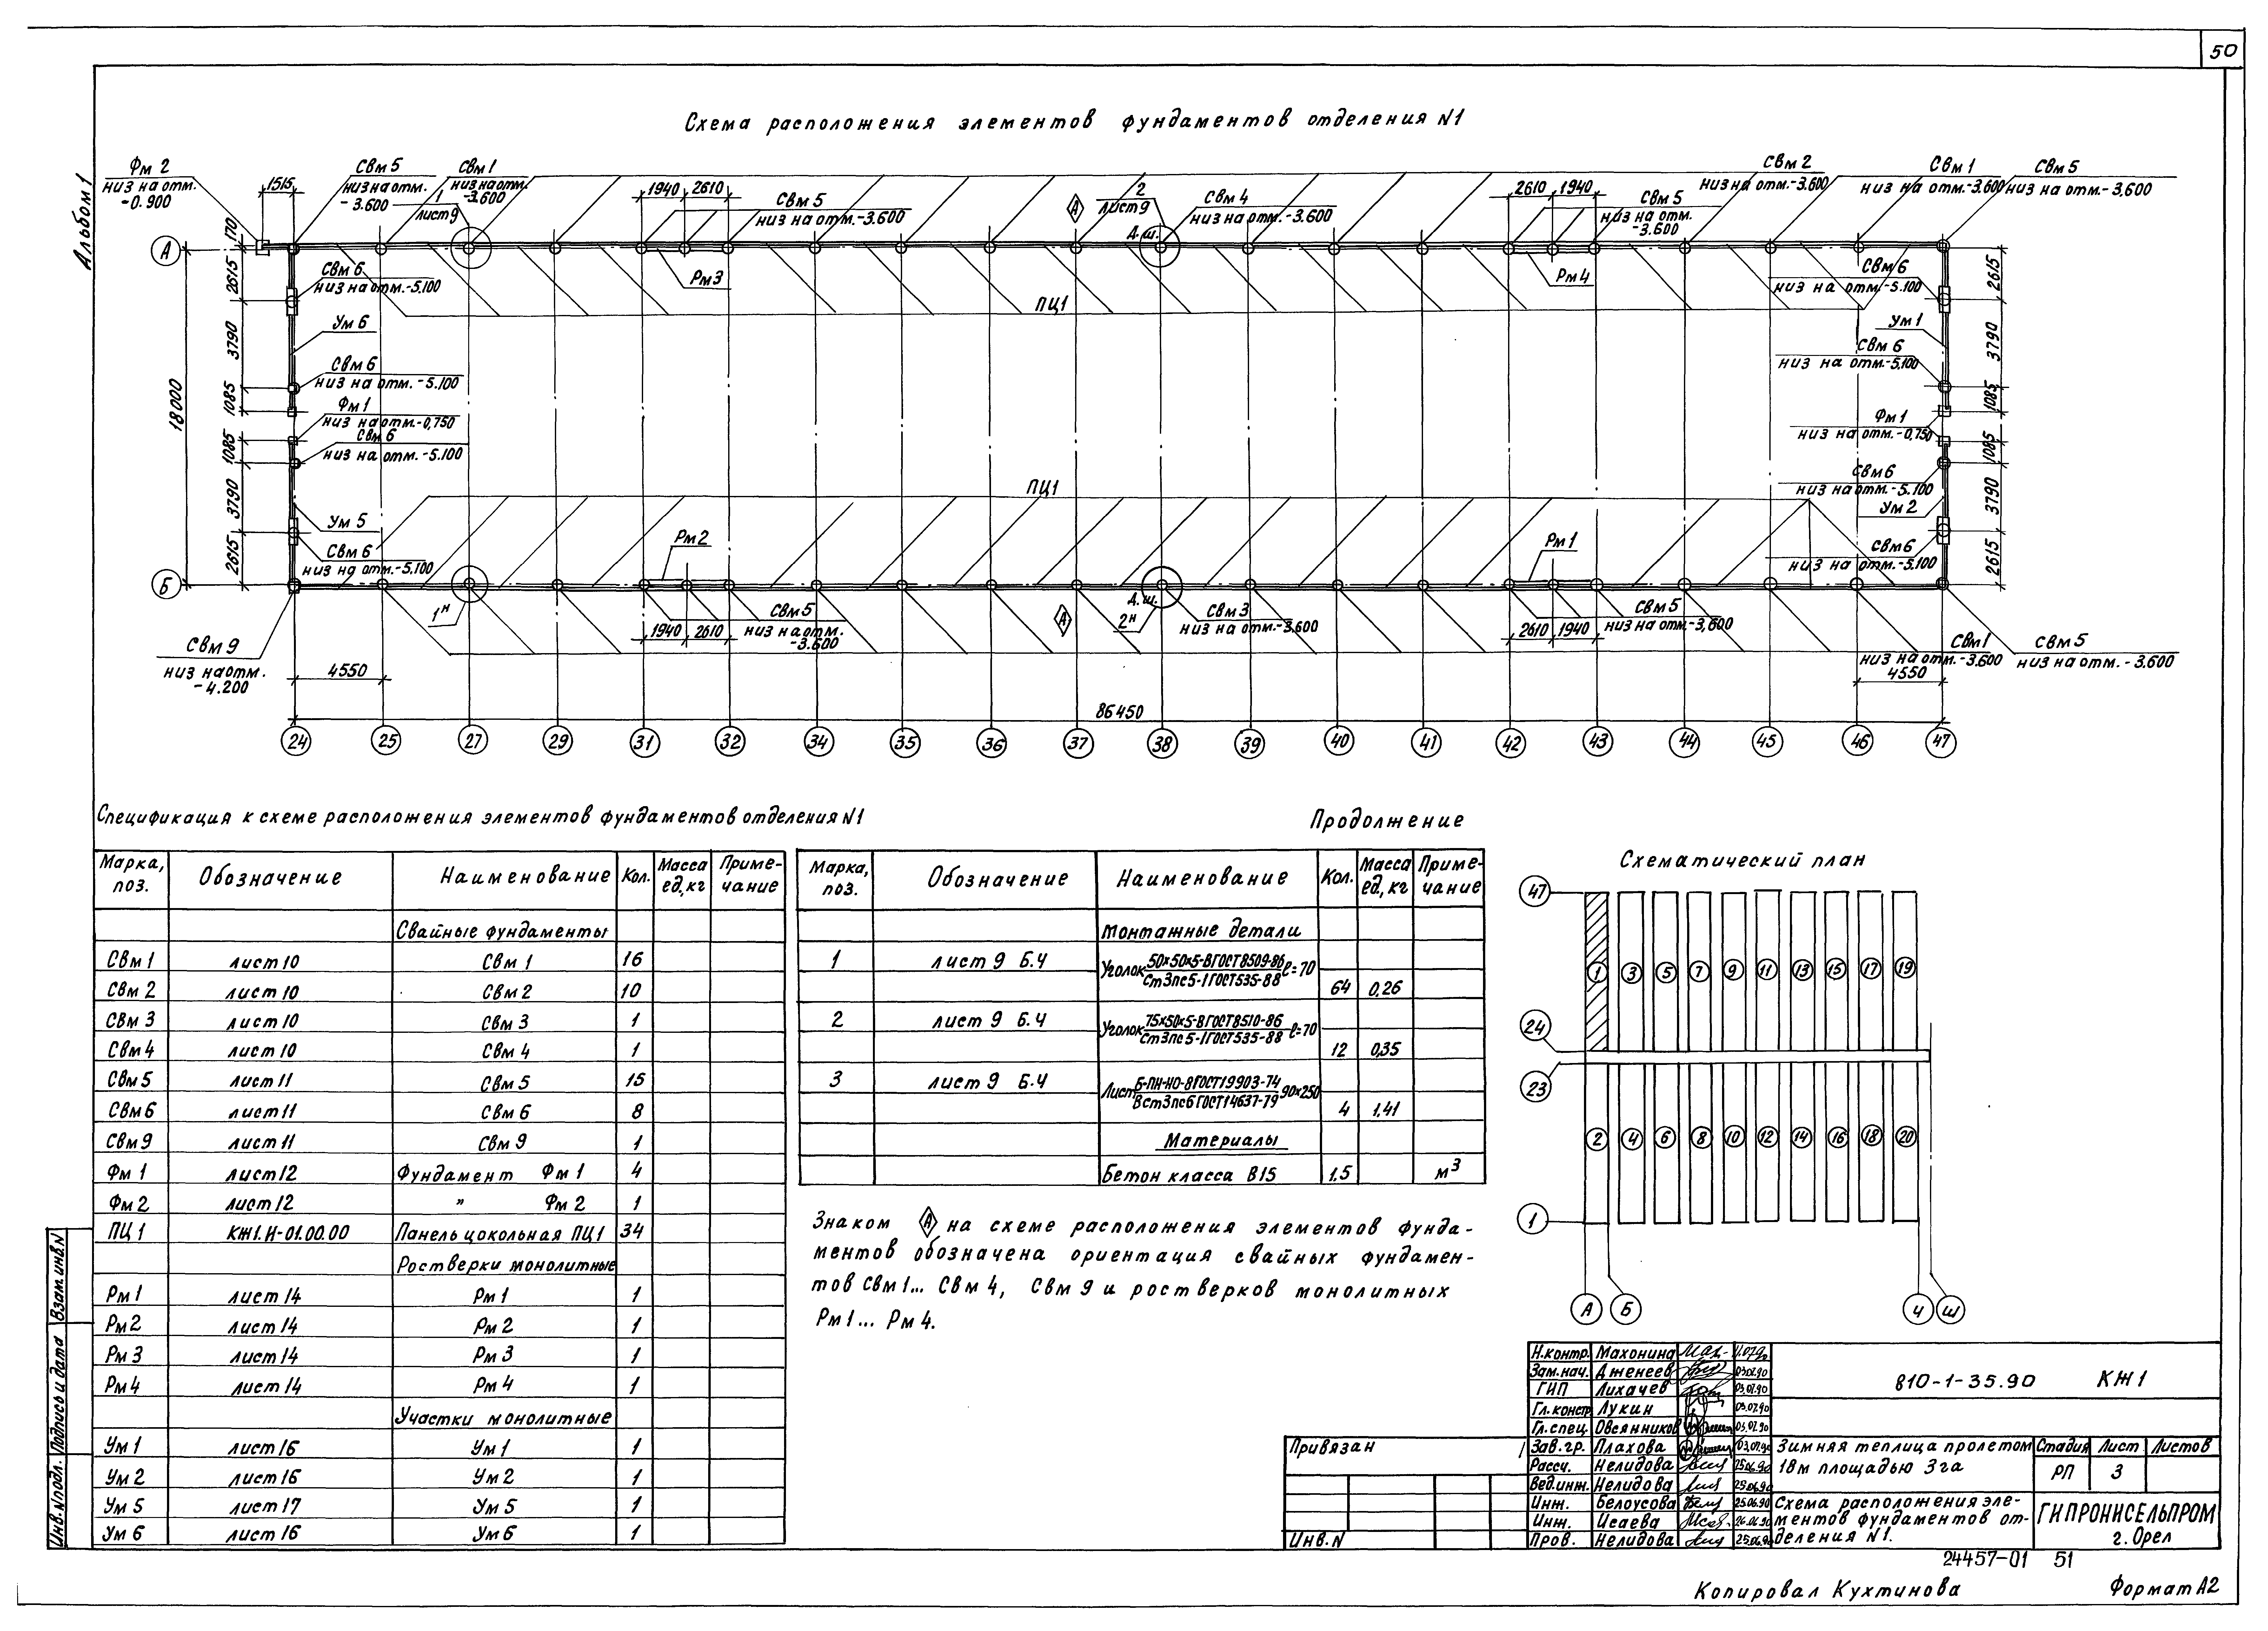 50
Альбом 1
Схема расположения элементов фундаментов отделения N1
Фм 2
низ на отм.
-0.900
1515
Свм 5
низ на отм.
-3.600
Свм 1
низ на отм.
-3.600
1
лист 9
1940 2610
Свм 5
низ на отм.-3.600
А
2
лист 9
Д.ш.
Свм 4
низ на отм.-3.600
2610 1940
Свм 5
низ на отм.
-3.600
Свм 2
низ на отм.-3.600
Свм 1
низ на отм.-3.600
Свм 5
низ на отм.-3.600
А
170
2615
3790
1085
1085
3790
2615
18000
Свм 6
низ на отм.-5.100
Ум 6
Свм 6
низ на отм.-5.100
Фм 1
низ на отм.-0,750
Свм 6
низ на отм.-5.100
Ум 5
Свм 6
низ на отм.-5.100
Рм3
ПЦ1
Рм 4
Свм 6
низ на отм.-5.100
Ум 1
Свм 6
низ на отм.-5,100
Фм 1
низ на отм.-0,750
Свм 6
низ на отм.-5.100
Ум 2
Свм 6
низ на отм.-5.100
2615
3790
1085
1085
3790
2615
ПЦ1
Рм2
Рм 1
Б
1н
Свм 9
низ на отм.
-4.200
4550
1940 2610
Свм 5
низ на отм.
-3.600
А
Д.ш.
2н
Свм 3
низ на отм.-3.600
2610 1940
Свм 5
низ на отм.-3,600
Свм 1
низ на отм.-3.600
4550
Свм 5
низ на отм.-3.600
86450
24 25 27 29 31 32 34 35 36 37 38 39 40 41 42 43 44 45 46 47
Спецификация к схеме расположения элементов фундаментов отделения N1
Марка, поз. Обозначение Наименование Кол. Масса ед,кг Приме-чание
Свайные фундаменты
Свм 1 лист 10 Свм 1 16
Свм 2 лист 10 Свм 2 10
Свм 3 лист 10 Свм 3 1
Свм 4 лист 10 Свм 4 1
Свм 5 лист 11 Свм 5 15
Свм 6 лист 11 Свм 6 8
Свм 9 лист 11 Свм 9 1
Фм 1 лист 12 Фундамент Фм 1 4
Фм 2 лист 12 " Фм 2 1
ПЦ 1 КЖ1.И-01.00.00 Панель цокольная ПЦ1 34
Ростверки монолитные
Рм 1 лист 14 Рм 1 1
Рм 2 лист 14 Рм 2 1
Рм 3 лист 14 Рм 3 1
Рм 4 лист 14 Рм 4 1
Участки монолитные
Ум 1 лист 16 Ум 1 1
Ум 2 лист 16 Ум 2 1
Ум 5 лист 17 Ум 5 1
Ум 6 лист 16 Ум 6 1
Продолжение
Марка, поз. Обозначение Наименование Кол. Масса ед,кг Приме-чание
Монтажные детали
1 лист 9 Б.Ч Уголок 50х50х5-В ГОСТ 8509-86 / Ст3пс5-1 ГОСТ 535-88 ℓ=70 64 0,26
2 лист 9 Б.Ч Уголок 75х50х5-В ГОСТ 8510-86 / Ст3пс5-1 ГОСТ 535-88 ℓ=70 12 0,35
3 лист 9 Б.Ч Лист Б-ПН-НО-8 ГОСТ 19903-74 / ВСт3пс6 ГОСТ 14637-79 90х250 4 1,41
Материалы
Бетон класса В15 1,5 м3
Знаком А на схеме расположения элементов фунда-
ментов обозначена ориентация свайных фундамен-
тов Свм 1... Свм 4, Свм 9 и ростверков монолитных
Рм 1... Рм 4.
Схематический план
47
24
23
1
1 3 5 7 9 11 13 15 17 19
2 4 6 8 10 12 14 16 18 20
А Б Ч Ш
Взам. инв.N
Подпись и дата
Инв. N подл.
Привязан
Инв. N
Н.контр. Махонина
Зам.нач. Дженеев 03.07.90
ГИП Лихачев 03.07.90
Гл.констр Лукин 03.07.90
Гл.спец. Овсянников 03.07.90
Зав.гр. Плахова 03.07.90
Рассч. Нелидова 25.06.90
Вед.инж. Нелидова 25.06.90
Инж. Белоусова 25.06.90
Инж. Исаева 26.06.90
Пров. Нелидова 25.06.90
810-1-35.90 КЖ1
Зимняя теплица пролетом
18м площадью 3 га
Стадия Лист Листов
РП 3
Схема расположения эле-
ментов фундаментов от-
деления N1.
ГИПРОНИСЕЛЬПРОМ
г. Орел
24457-01 51
Копировал Кухтинова
Формат А2